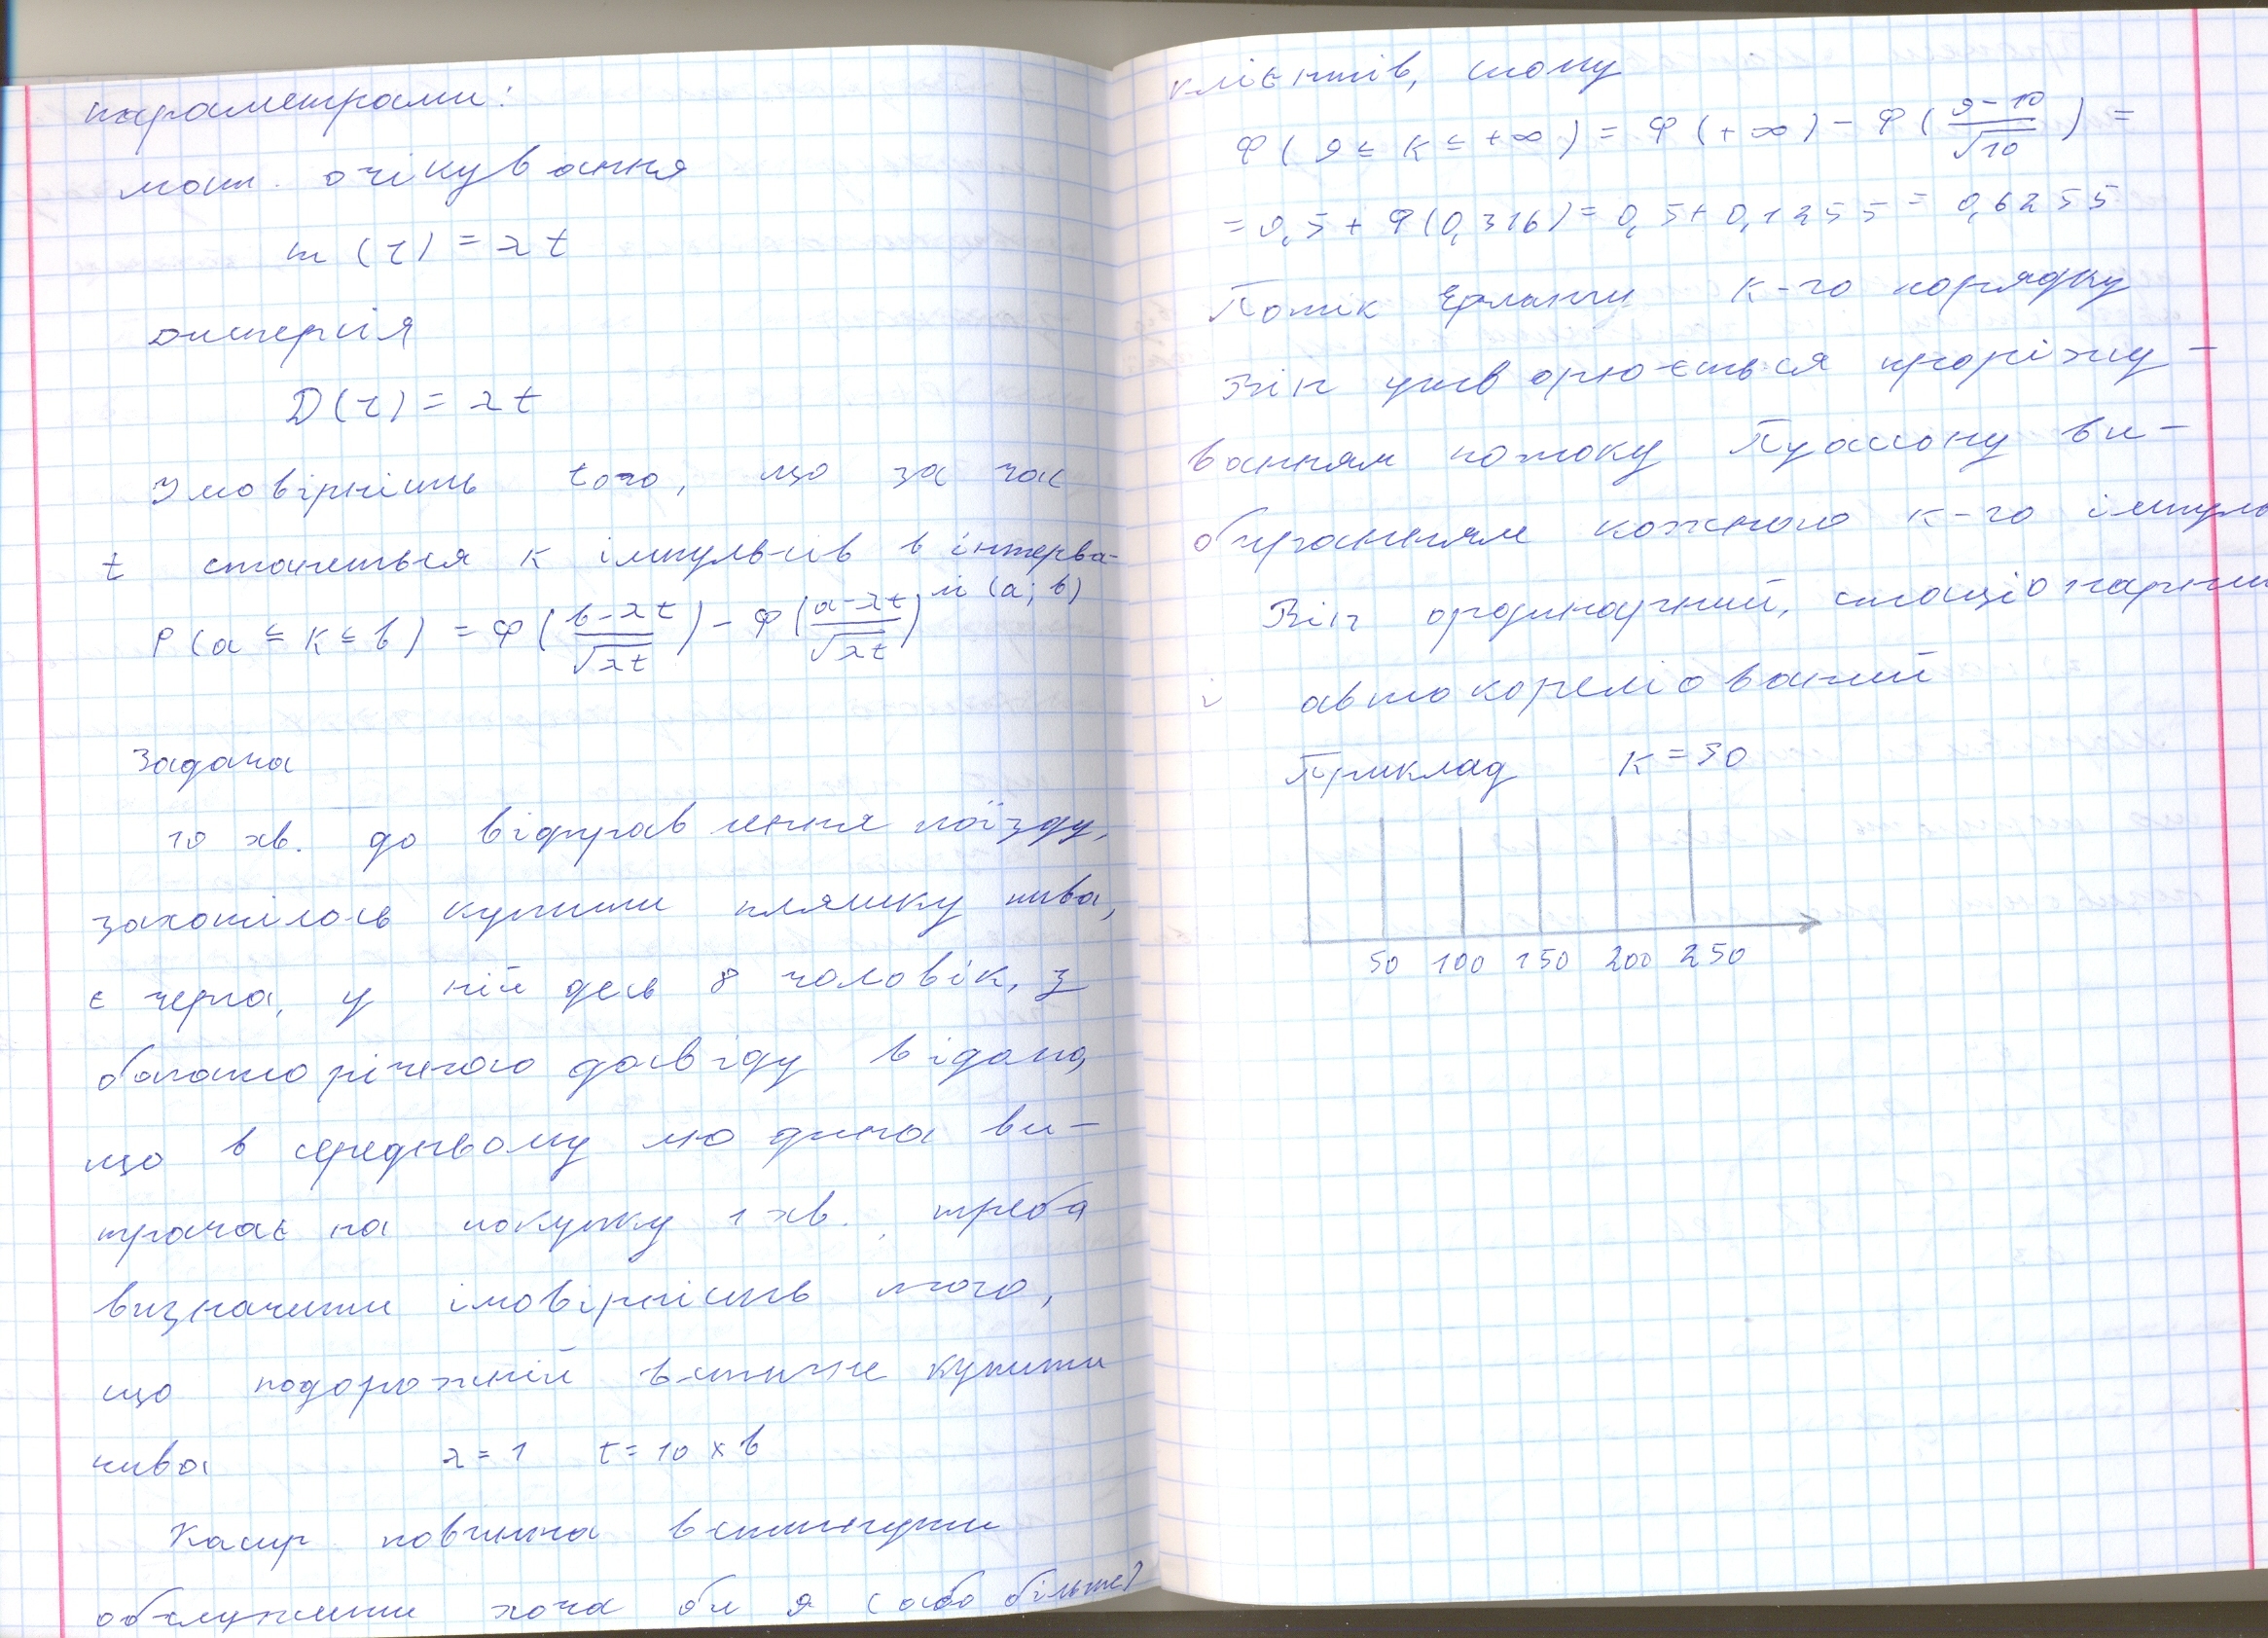 параметрами:
мат. очікування
m(τ) = λt
дисперсія
D(τ) = λt
Імовірність того, що за час
t станеться к імпульсів в інтерва-
лі (a; b)
P(a ≤ K ≤ b) = Ф((b-λt)/√λt) - Ф((a-λt)/√λt)
Задача
10 хв. до відправлення поїзду,
захотілось купити пляшку пива,
є черга, у ній десь 8 чоловік, з
багаторічного досвіду відомо,
що в середньому людина ви-
трачає на покупку 1 хв. , треба
визначити імовірність того,
що подорожній встигне купити
пива λ = 1 t = 10 хв
Касир повинна встигнути
обслужити хоча би 9 (або більше)
клієнтів, тому
Ф(9 ≤ K ≤ +∞) = Ф(+∞) - Ф((9-10)/√10) =
= 0,5 + Ф(0,316) = 0,5 + 0,1255 = 0,6255
Потік Ерланги к-го порядку
Він утворюється проріжу-
ванням потоку Пуассону ви-
биранням кожного к-го імпуль
Він ординарний, стаціонарний
і автокорельований
Приклад K = 50
50 100 150 200 250